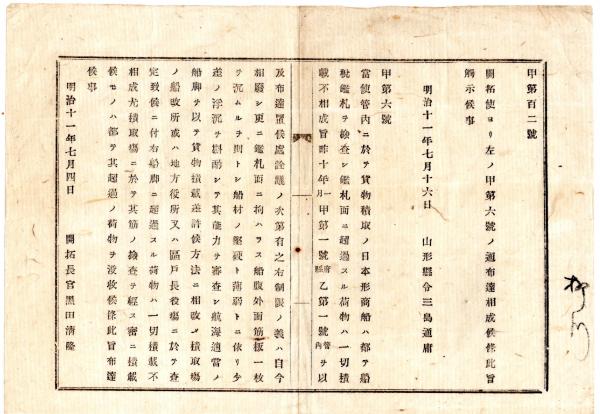 甲第百二號
開拓使ヨリ左ノ甲第六號ノ通布達相成候條此旨
觸示候事
明治十一年七月十六日 山形縣令三島通庸
甲第六號
當使管内ニ於テ貨物積取ノ日本形商船ハ都テ船
税鑑札ヲ檢査シ鑑札面ニ超過スル荷物ハ一切積
載不相成旨昨十年一月甲第一號府縣乙第一號管内ヲ以
及布達置候處詮議ノ次第有之右制限ノ義ハ自今
相廢シ更ニ鑑札面ニ拘ハラス船腹外面筋板一枚
ヲ沉ムルヲ則トシ船材ノ堅硬ト薄弱トニ依リ少
差ノ浮沉ヲ斟酌シテ其能力ヲ審査シ航海適當ノ
船脚ヲ以テ貨物積載差許候方法ニ相改メ積取場
ノ船改所或ハ地方役所又ハ區戸長役場ニ於テ査
定致候ニ付右船脚ニ超過スル荷物ハ一切積載不
相成尤積取場ニ於テ其筋ノ檢査ヲ經ス密ニ積載
候モノハ都テ其超過ノ荷物ヲ沒收候條此旨布達
候事
明治十一年七月四日 開拓長官黒田清隆